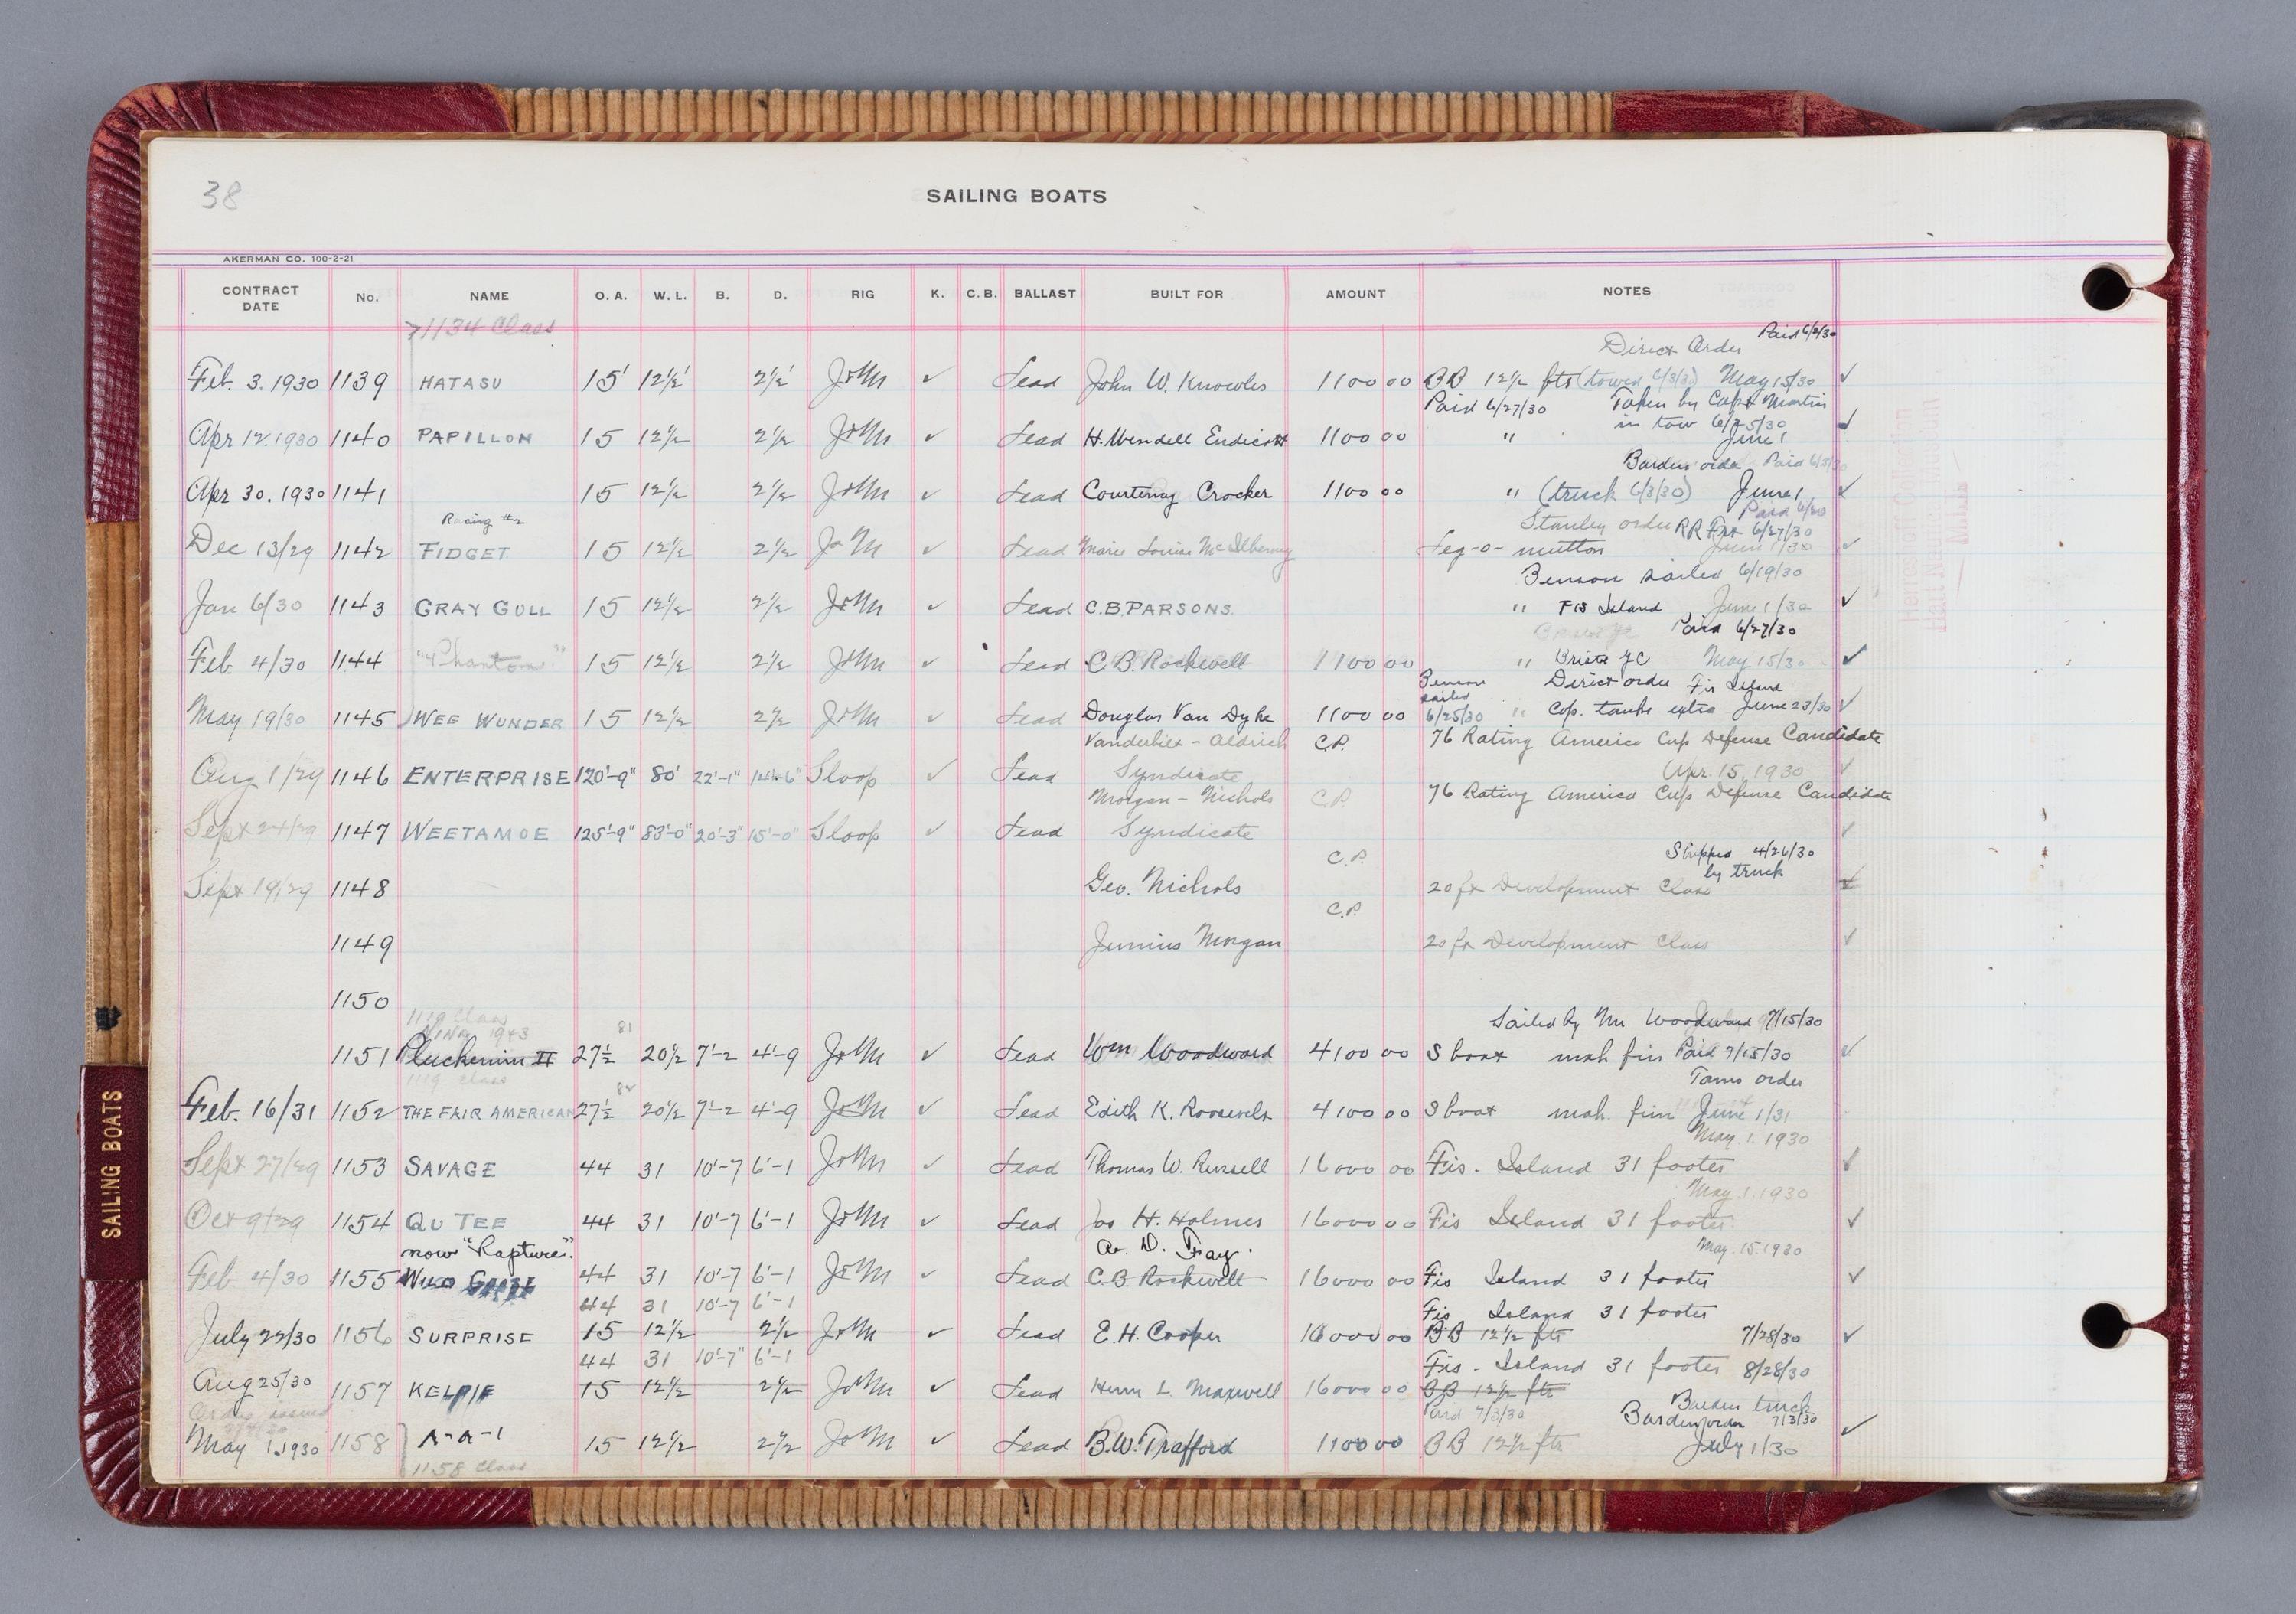 38
SAILING BOATS
AKERMAN CO. 100-2-21
CONTRACT DATE No. NAME O. A. W. L. B. D. RIG K. C. B. BALLAST BUILT FOR AMOUNT NOTES
1134 Class
Paid 6/3/30
Direct Order
Feb. 3. 1930 1139 HATASU 15' 12½' 2½' J&M ✓ Lead John W. Knowles 1100 00 BB 12½ ftr (towed 6/3/30) May 15/30 ✓
Paid 6/27/30 Taken by Capt Martin
in tow 6/25/30
Apr 12. 1930 1140 PAPILLON 15 12½ 2½ J&M ✓ Lead H. Wendell Endicott 1100 00 " June 1 ✓
Barden order Paid 6/3/30
Apr 30. 1930 1141 15 12½ 2½ J&M ✓ Lead Courtenay Crocker 1100 00 " (truck 6/3/30) June 1 ✓
Racing #2 Stanley order RR Frt 6/27/30
Dec 13/29 1142 FIDGET 15 12½ 2½ J&M ✓ Lead Marie Louise McIlhenny Leg-o-mutton June 1/30 ✓
Benson sailed 6/19/30
Jan 6/30 1143 GRAY GULL 15 12½ 2½ J&M ✓ Lead C.B. PARSONS. " Fis Island June 1/30 ✓
Paid 6/27/30
Feb. 4/30 1144 "Phantom" 15 12½ 2½ J&M ✓ Lead C. B. Rockwell 1100 00 " Bristol YC May 15/30 ✓
Benson sailed Direct order Fis Island
May 19/30 1145 WEE WUNDER 15 12½ 2½ J&M ✓ Lead Douglas Van Dyke 1100 00 6/25/30 " Cop. tanks extra June 23/30 ✓
Vanderbilt - Aldrich C.P. 76 Rating America Cup Defense Candidate
Aug 1/29 1146 ENTERPRISE 120'-9" 80' 22'-1" 14'-6" Sloop ✓ Lead Syndicate Apr. 15, 1930 ✓
Morgan - Nichols C.P. 76 Rating America Cup Defense Candidate
Sept 24/29 1147 WEETAMOE 125'-9" 83'-0" 20'-3" 15'-0" Sloop ✓ Lead Syndicate ✓
C.P. Shipped 4/26/30
by truck
Sept 19/29 1148 Geo. Nichols 20 ft Development Class ✓
C.P.
1149 Junius Morgan 20 ft Development Class ✓
1150
1119 Class
NINA 1943 81 Sailed by Mr Woodward 7/15/30
1151 Pluckemin II 27½ 20½ 7'-2 4'-9 J&M ✓ Lead Wm Woodward 4100 00 S boat mah fin Paid 7/15/30 ✓
1119 class 82 Tams order
Feb. 16/31 1152 THE FAIR AMERICAN 27½ 20½ 7'-2 4'-9 J&M ✓ Lead Edith K. Roosevelt 4100 00 S boat mah. fin June 1/31
May. 1. 1930
Sept 27/29 1153 SAVAGE 44 31 10'-7 6'-1 J&M ✓ Lead Thomas W. Russell 16000 00 Fis. Island 31 footer ✓
May. 1. 1930
Oct 9/29 1154 QUTEE 44 31 10'-7 6'-1 J&M ✓ Lead Jas H. Holmes 16000 00 Fis Island 31 footer ✓
now "Rapture". May. 15. 1930
Feb. 4/30 1155 44 31 10'-7 6'-1 J&M ✓ Lead C. B. Rockwell 16000 00 Fis Island 31 footer ✓
44 31 10'-7 6'-1 Fis Island 31 footer
July 22/30 1156 SURPRISE 15 12½ 2½ J&M ✓ Lead E. H. Cooper 16000 00 BB 12½ ftr 7/28/30 ✓
44 31 10'-7" 6'-1 Fis - Island 31 footer 8/28/30
Aug 25/30 1157 KELPIE 15 12½ 2½ J&M ✓ Lead L. Maxwell 16000 00 BB 12½ ftr
Order issued Paid 7/3/30 Barden truck
Barden order 7/3/30
May 1. 1930 1158 A-A-1 15 12½ 2½ J&M ✓ Lead B. W. Trafford 1100 00 BB 12½ ftr July 1/30 ✓
1158 Class
SAILING BOATS